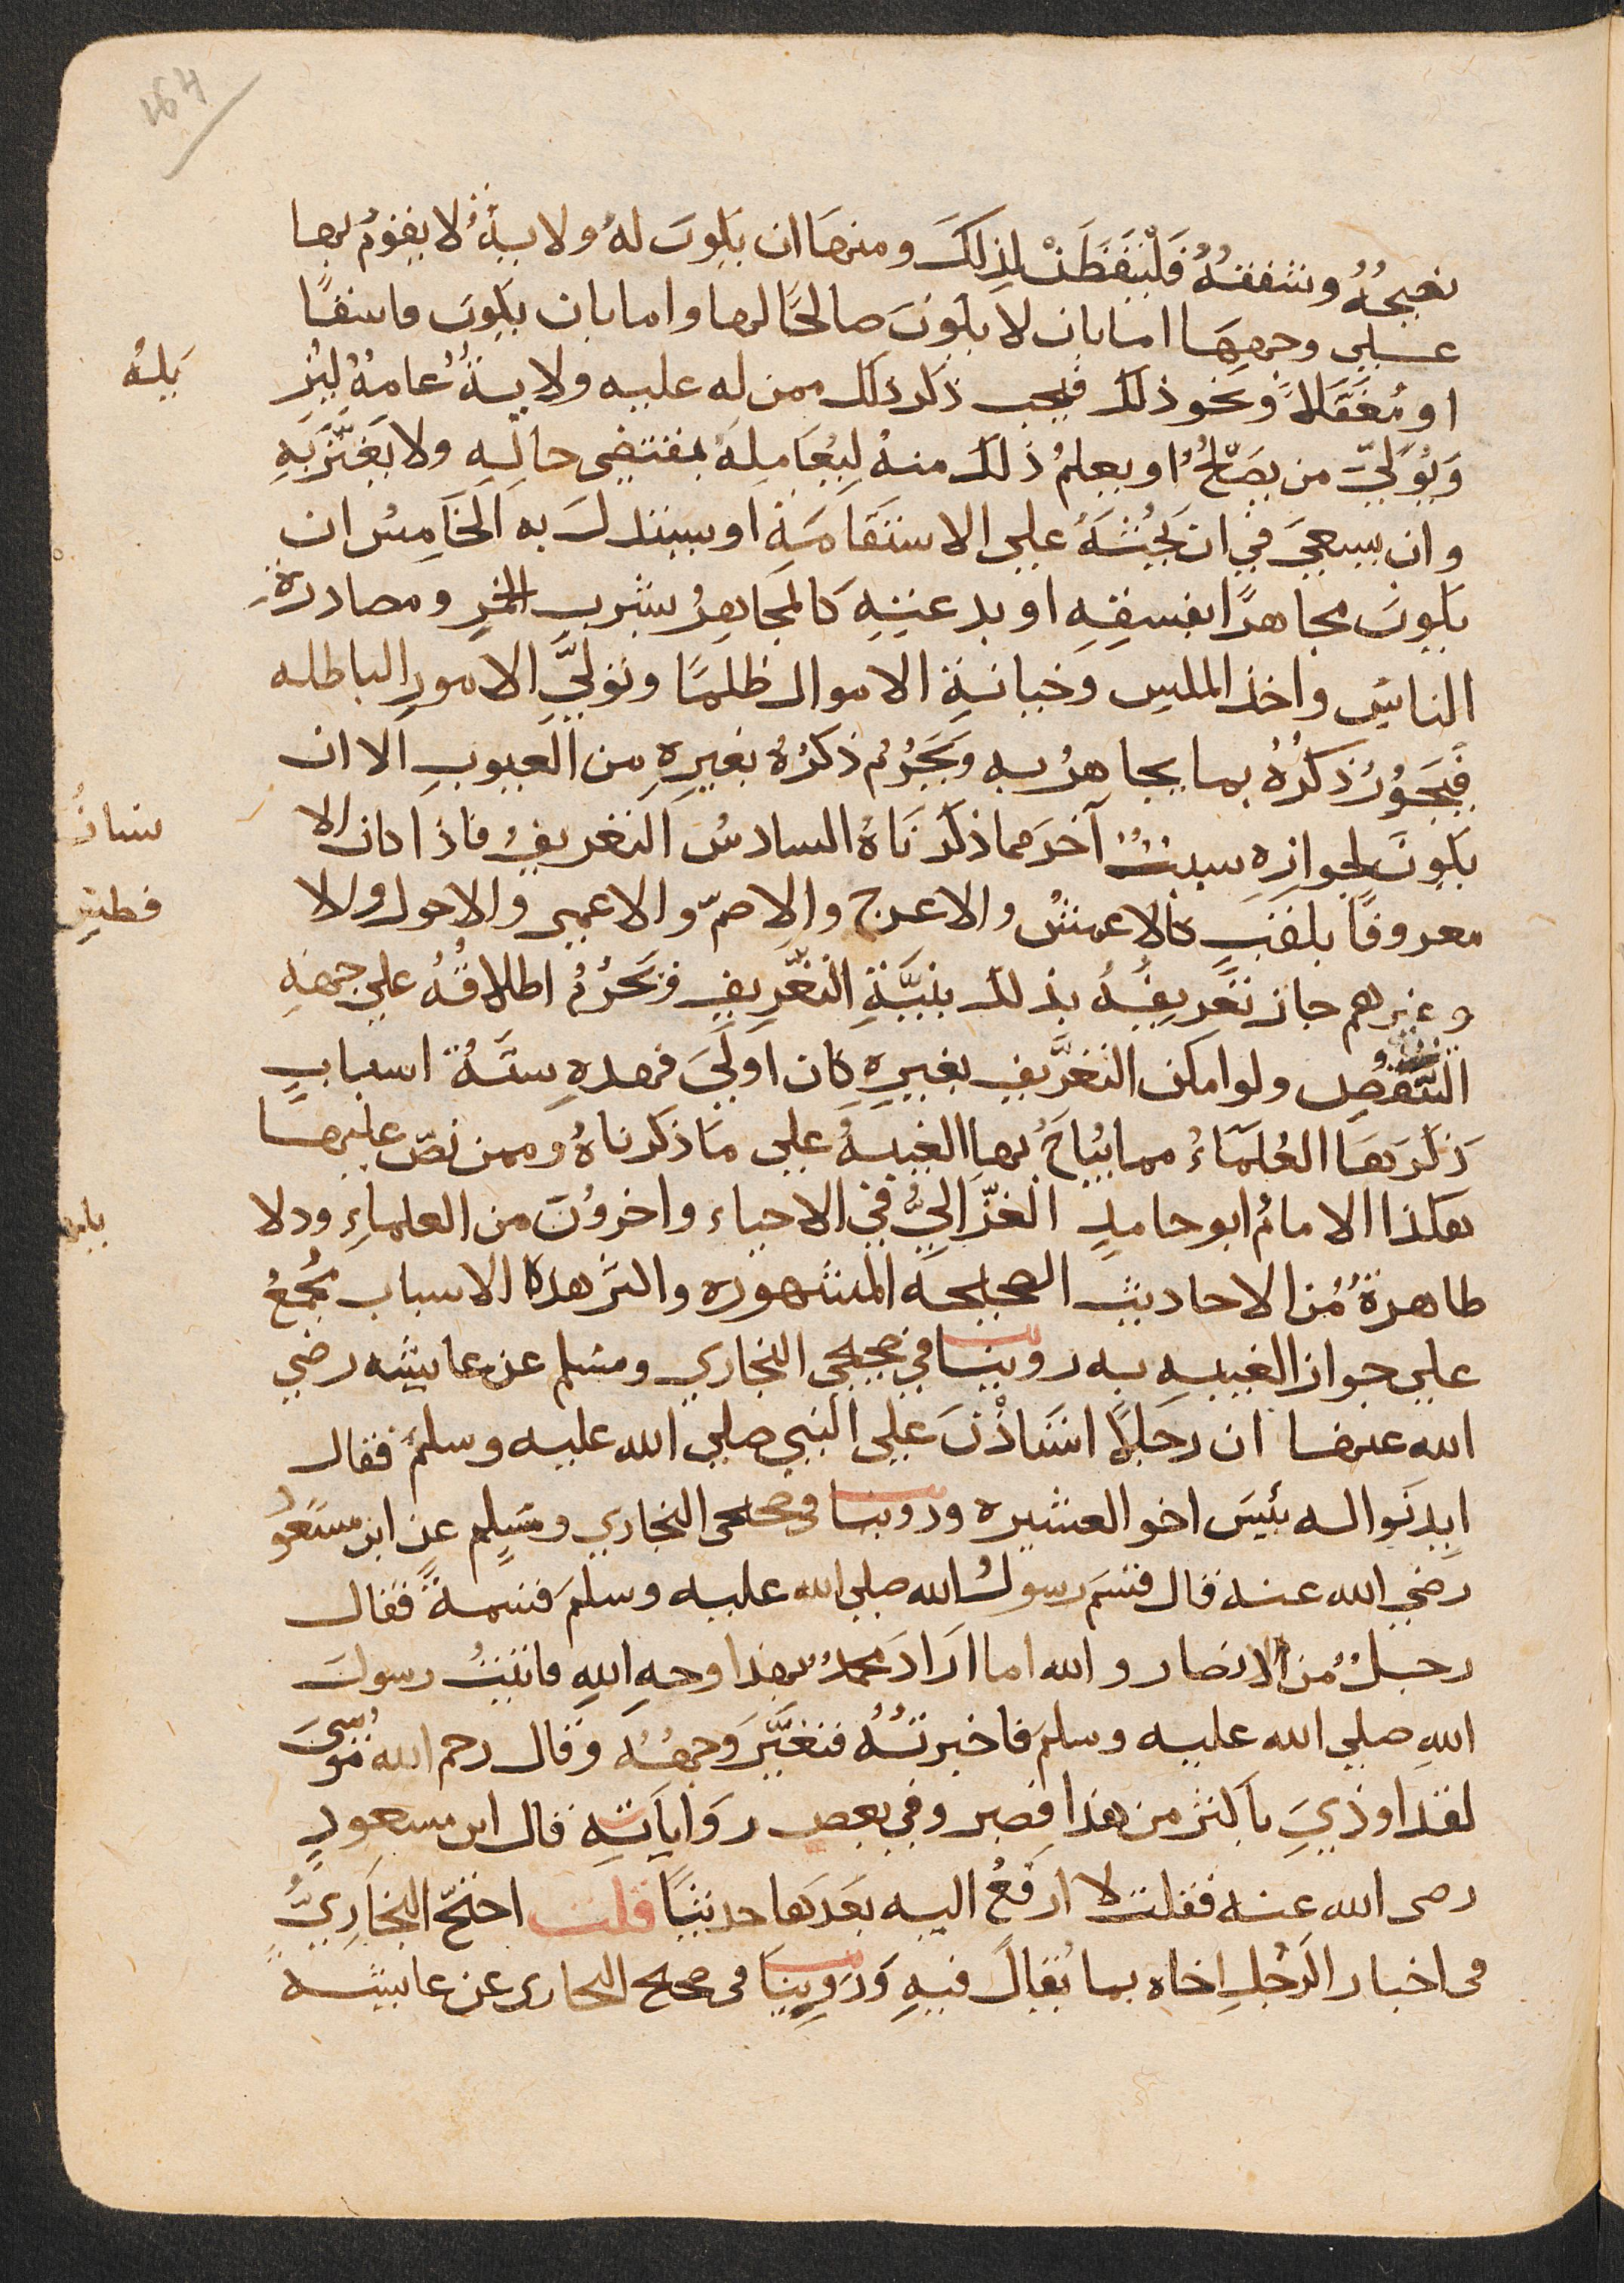 164
نصيحةٌ وشفقةٌ فَلْيَتَفَطَّنْ لذلكَ ومنها ان يكونَ لهُ ولايةٌ لا يقومُ بها
على وجهِهَا اما بان لا يكونَ صالحًا لها واما بان يكونَ فاسقًا
او مُغَفَّلاً ونحو ذلك فيجب ذكر ذلك ممن له عليه ولايةٌ عامةٌ ليُز
يلهُ
وَيُوَلّيَ من يصَلُحُ او يعلمُ ذلك منهُ لِيُعَامِلَهُ بمقتضى حالِهِ ولا يَغتَرَّ بَهِ
وان يسعىَ في ان يَحُثَّهُ على الاستقامَةِ او يستبدلَ به الخَامِسُ ان
يكونَ مجاهرًا بفسقِهِ او بدعتِهِ كالمُجَاهِرُ بشربِ الخمرِ ومصادرةِ
الناسِ واخذ المكسِ وَخيانةِ الاموال ظلمًا وتولّيَ الامورِ الباطله
فَيَجُوزُ ذكرُهُ بما يجاهرُ به وَيَحرُمُ ذكرُهُ بغيرِهِ من العيوبِ الا ان
يكونَ لجوازِهِ سببٌ آخرَ مما ذكرنَاهُ السادسُ التعريفُ فاذا كان الا
نسانُ
معروفًا بلقبٍ كالاعمشِ والاعرجِ والاصمّ والاعمى والاحول والا
فطسِ
وغيرهم جاز تَعريفُهُ بذلك بنيَّةِ التعرِيفِ وَيَحرُمُ اطلاقُهُ على جهةِ
التنقصِ ولو امكن التعرِيف بغيرِهِ كان اولىَ فهذهِ ستةُ اسبابٍ
ذكرَهَا العُلَمَاءُ مما يُبَاحُ بها الغيبهُ على مَا ذكرناهُ وممن نصّ عليها
هكذا الامامُ ابو حامدٍ الغزّاليُّ في الاحياء واخروُنَ من العلماءِ ودلا
يلها
ظاهرةٌ مُن الاحاديث الصحيحه المشهوره واكثر هذه الاسباب مُجمعُ
على جواز الغيبهِ به روينا في صحيحي البخاري ومسلم عن عايشه رضي
الله عنها ان رَجَلاً استَاذْنَ على النبي صلى الله عليه وسلم فقال
ايذنَوا له بئيسَ اخو العشيره وروينا في صحيحى البخاري ومسَلِم عن ابن مسَعوُد
رضي الله عنه قال قسَم رسولُ الله صلى الله عليه وسلمَ قسمةً فقال
رجلٌ مُن الانصار والله اما ارَادَ محمدٌ بهذا وجهِ اللهِ فاتيتُ رسولَ
اللهِ صلى الله عليه وسلمَ فاخبرتهُ فتغيَّرَ وَجهُهُ وَقال رحم الله مُوسىَ
لقد اوذيَ بأكثر من هذا فصبر وفي بعض رَوَاياتهِ قال ابن مسعودٍ
رصى الله عنه فقلت لا ارفَعُ اليه بعدَها حديثًا قلت احتجّ البخَاريُّ
فى اخبار الرَّجُلِ اخاه بما يُقالُ فيهِ وَرَوينَا فى صحيح البحارى عن عايشةَ